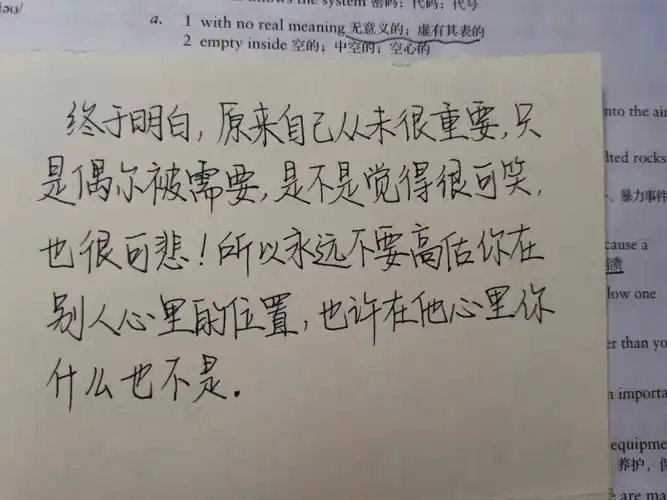 the system 密码；代码；代号
a. 1 with no real meaning 无意义的；虚有其表的
2 empty inside 空的；中空的；空心的
终于明白，原来自己从未很重要，只
是偶尔被需要，是不是觉得很可笑，
也很可悲！所以永远不要高估你在
别人心里的位置，也许在他心里你
什么也不是．
nto the air
lted rocks
、暴力事件
cause a
low one
er than yo
importa
equipme
养护，
are ma